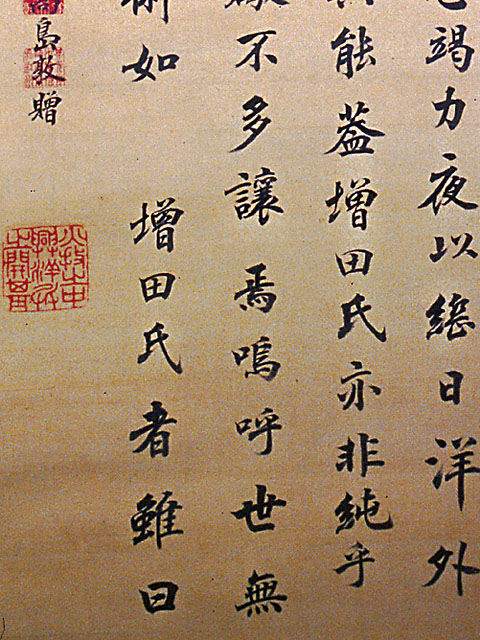 竭力夜以繼日洋外
能蓋增田氏亦非純乎
不多讓焉嗚呼世無
術如 增田氏者雖曰
島敦贈